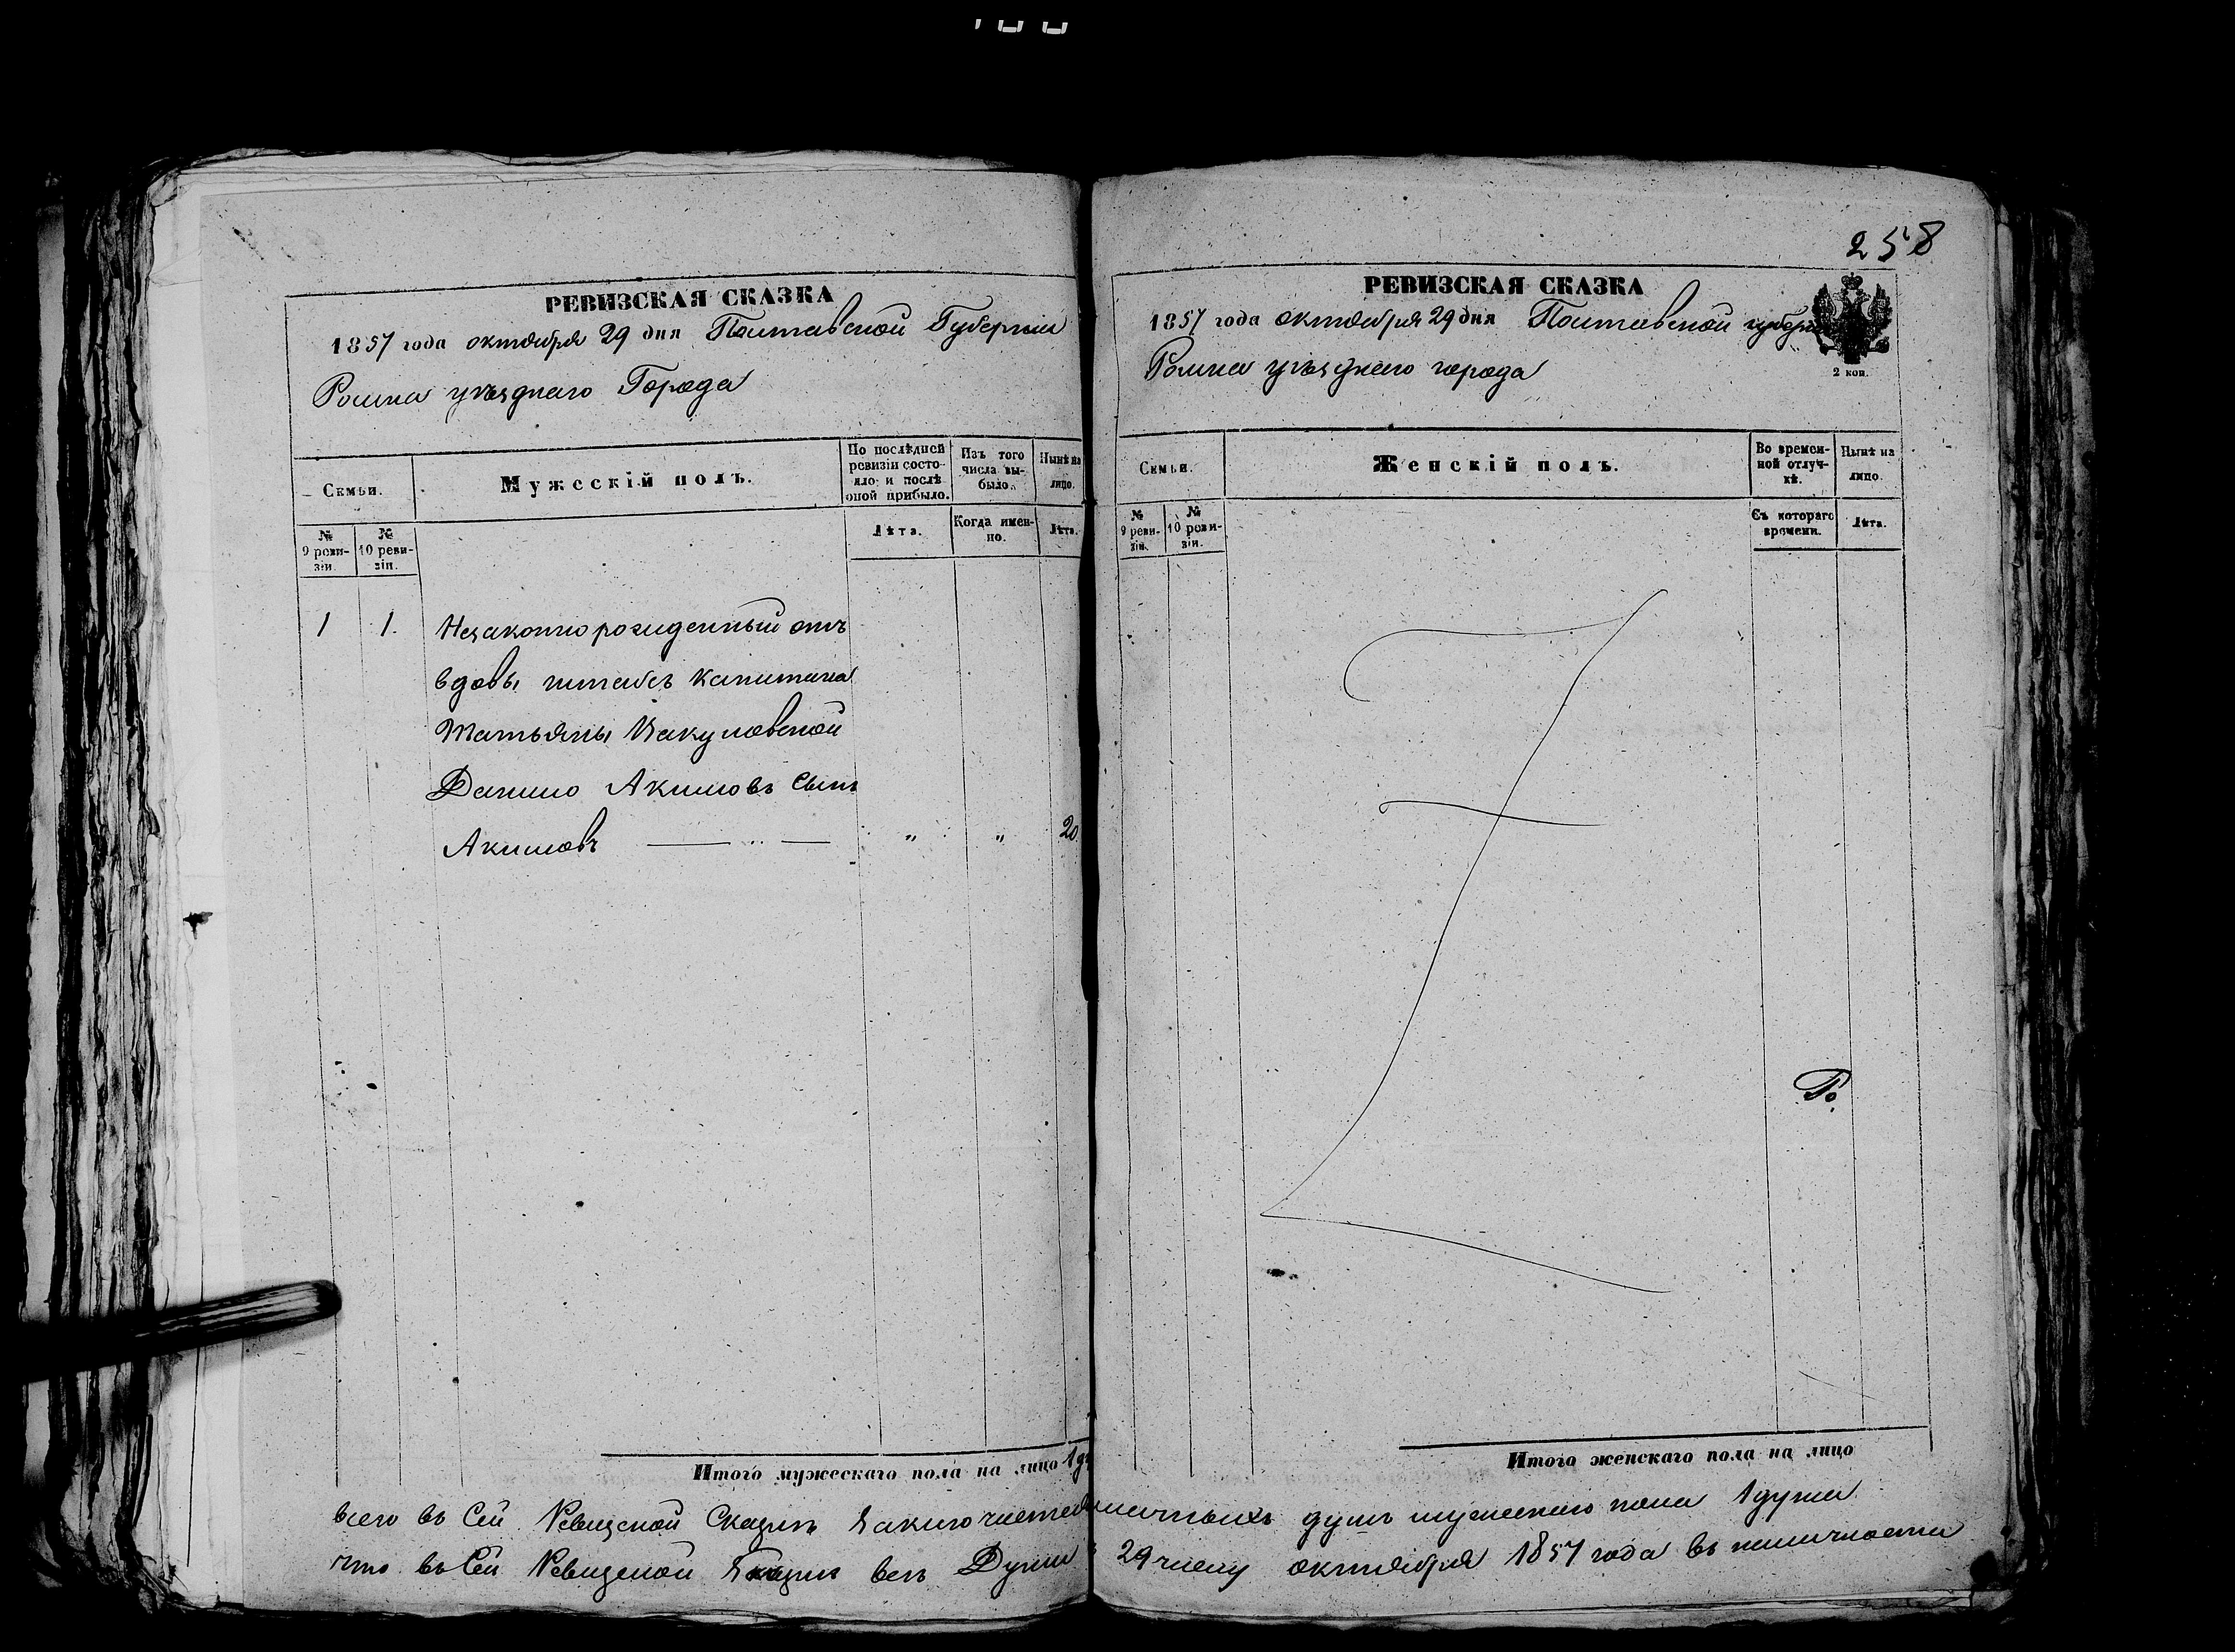 258
РЕВИЗСКАЯ СКАЗКА
1857 года октября 29 дня Полтавской Губернии
Ромна уѣзднаго Города
Семьи.
Мужескій полъ.
По послѣдней ревизіи состояло и послѣ оной прибыло.
Изъ того числа выбыло.
Нынѣ на лицо.
№ 9 ревизіи.
№ 10 ревизіи.
Лѣта.
Когда именно.
Лѣта.
1 1. Незаконно рожденный отъ
вдовы штабсъ капитана
Татьяны
Данило Акимовъ сынъ
Акимовъ — „ — „ „ 20
Итого мужескаго пола на лицо 1 ду
РЕВИЗСКАЯ СКАЗКА
1857 года октября 29 дня Полтавской губерн
Ромна уѣзднаго города
2 коп.
Семьи.
Женскій полъ.
Во временной отлучкѣ.
Нынѣ на лицо.
№ 9 ревизіи.
№ 10 ревизіи.
Съ котораго времени.
Лѣта.
Итого женскаго пола на лицо
всего въ Сей Ревизской Сказкѣ наличныхъ душъ мужескаго пола 1 душа
что въ Сей Ревизской Сказкѣ всѣ Души 29 числу октября 1857 года въ наличности